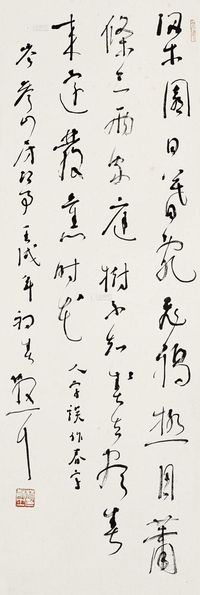 梁園日暮亂飛鴉極目蕭
條三兩家庭樹不知春去盡春
來還發舊時花 人字誤作春字
岑參山房事 壬戌年初春 散耳